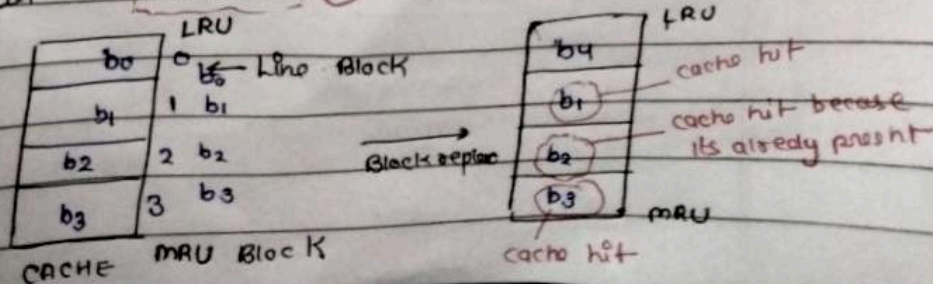 LRU
b0 0 b0 ← Line Block
b1 1 b1
b2 2 b2
b3 3 b3
CACHE MRU Block
Block replac
LRU
b4
b1 cache hit
b2 cache hit becase
its alredy presnt
b3
MRU
cache hit